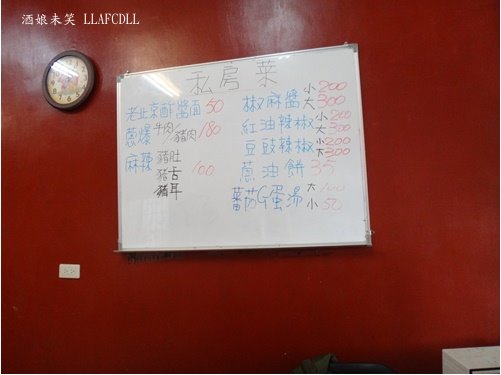 酒娘未笑 LLAFCDLL
私房菜
老北京酢醬面 50
蔥爆 牛肉/豬肉 180
麻辣 豬肚
豬舌 100
豬耳
椒麻醬 小200
大300
紅油辣椒 小200
大300
豆豉辣椒 小200
大300
蔥油餅 35
蕃茄G蛋湯 大100
小50